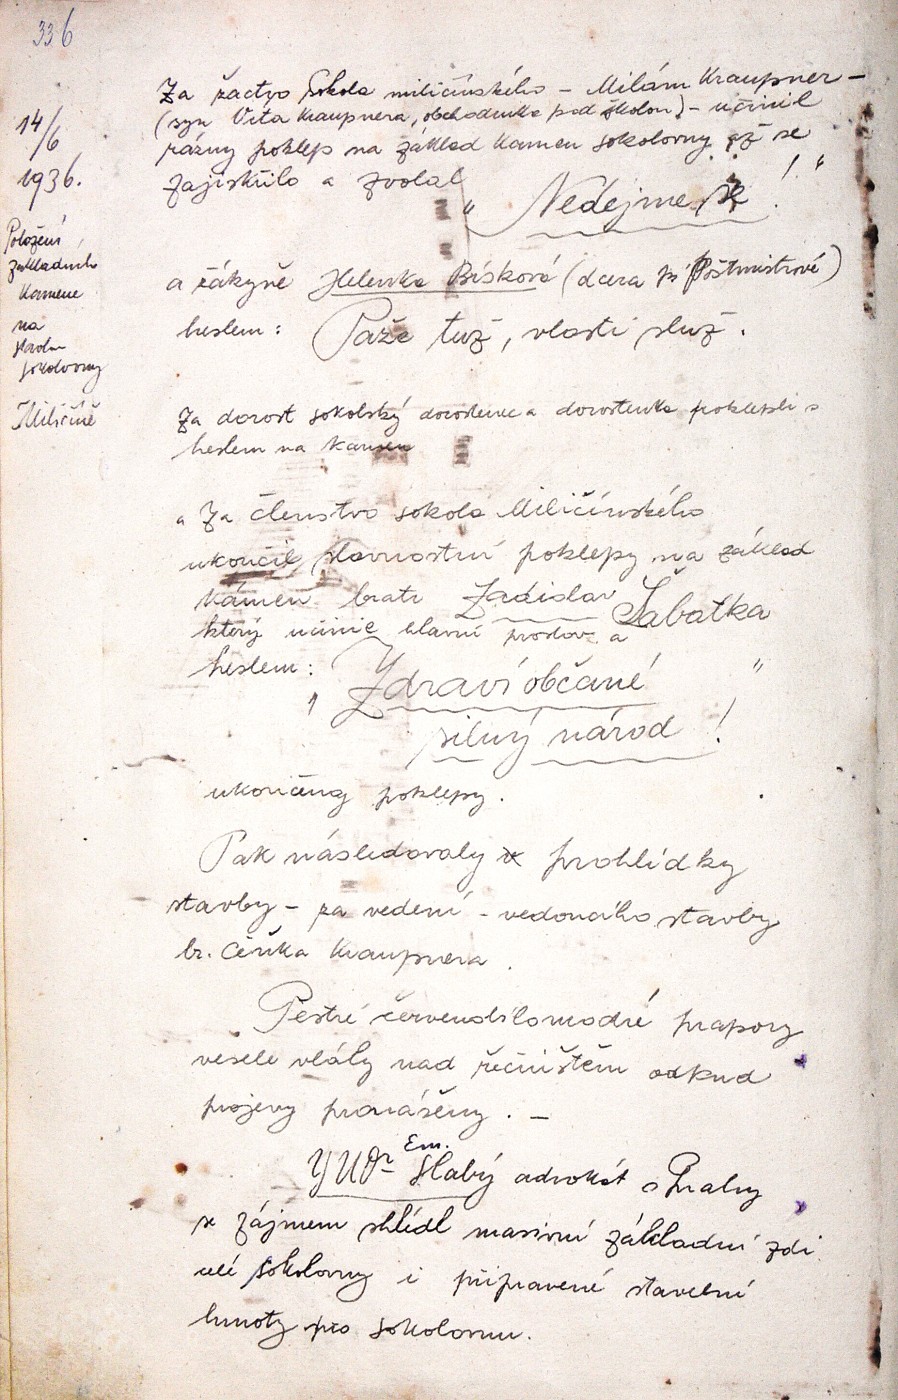 336
14/6
1936.
Položení
základního
kamene
na
stavbu
sokolovny
Miličíně
Za žactvo Sokola miličínského – Milán Kraupner –
(syn Víta Kraupnera, obchodníka pod školou) – učinil
rázný poklep na základ kamen sokolovny až se
zajiskřilo a zvolal
„ Nedejme se ! “
a žákyně Helenka Bísková (dcera pí Poštmistrové)
heslem: Paže tuž, vlasti služ.
Za dorost sokolský dorostenec a dorostenka poklepali s
heslem na kamen
a Za členstvo sokola Miličínského
ukončil slavnostní poklepy na základ
kámen bratr Ladislav Šabatka
který učinil hlavní proslov a
heslem:
„ Zdraví občané “
silný národ !
ukončeny poklepy.
Pak následovaly prohlídky
stavby – za vedení – vedoucího stavby
br. Čeňka Kraupnera.
Pestré červenobílomodré prapory
vesele vlály nad řečništěm odkud
projevy pronášeny. –
JUDr Em. Slabý advokát z Prahy
se zájmem shlédl masivní základní zdi
celé sokolovny i připravené stavební
hmoty pro sokolovnu.